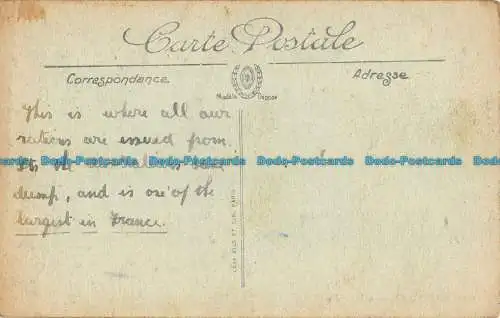 Carte Postale
Correspondance
Adresse
Modèle Déposé
This is where all our
rations are issued from.
Its the
dump, and is one of the
largest in France.
LÉVY FILS ET CIE, PARIS
Bodo-Postcards Bodo-Postcards Bodo-Postcards Bodo-Postcards